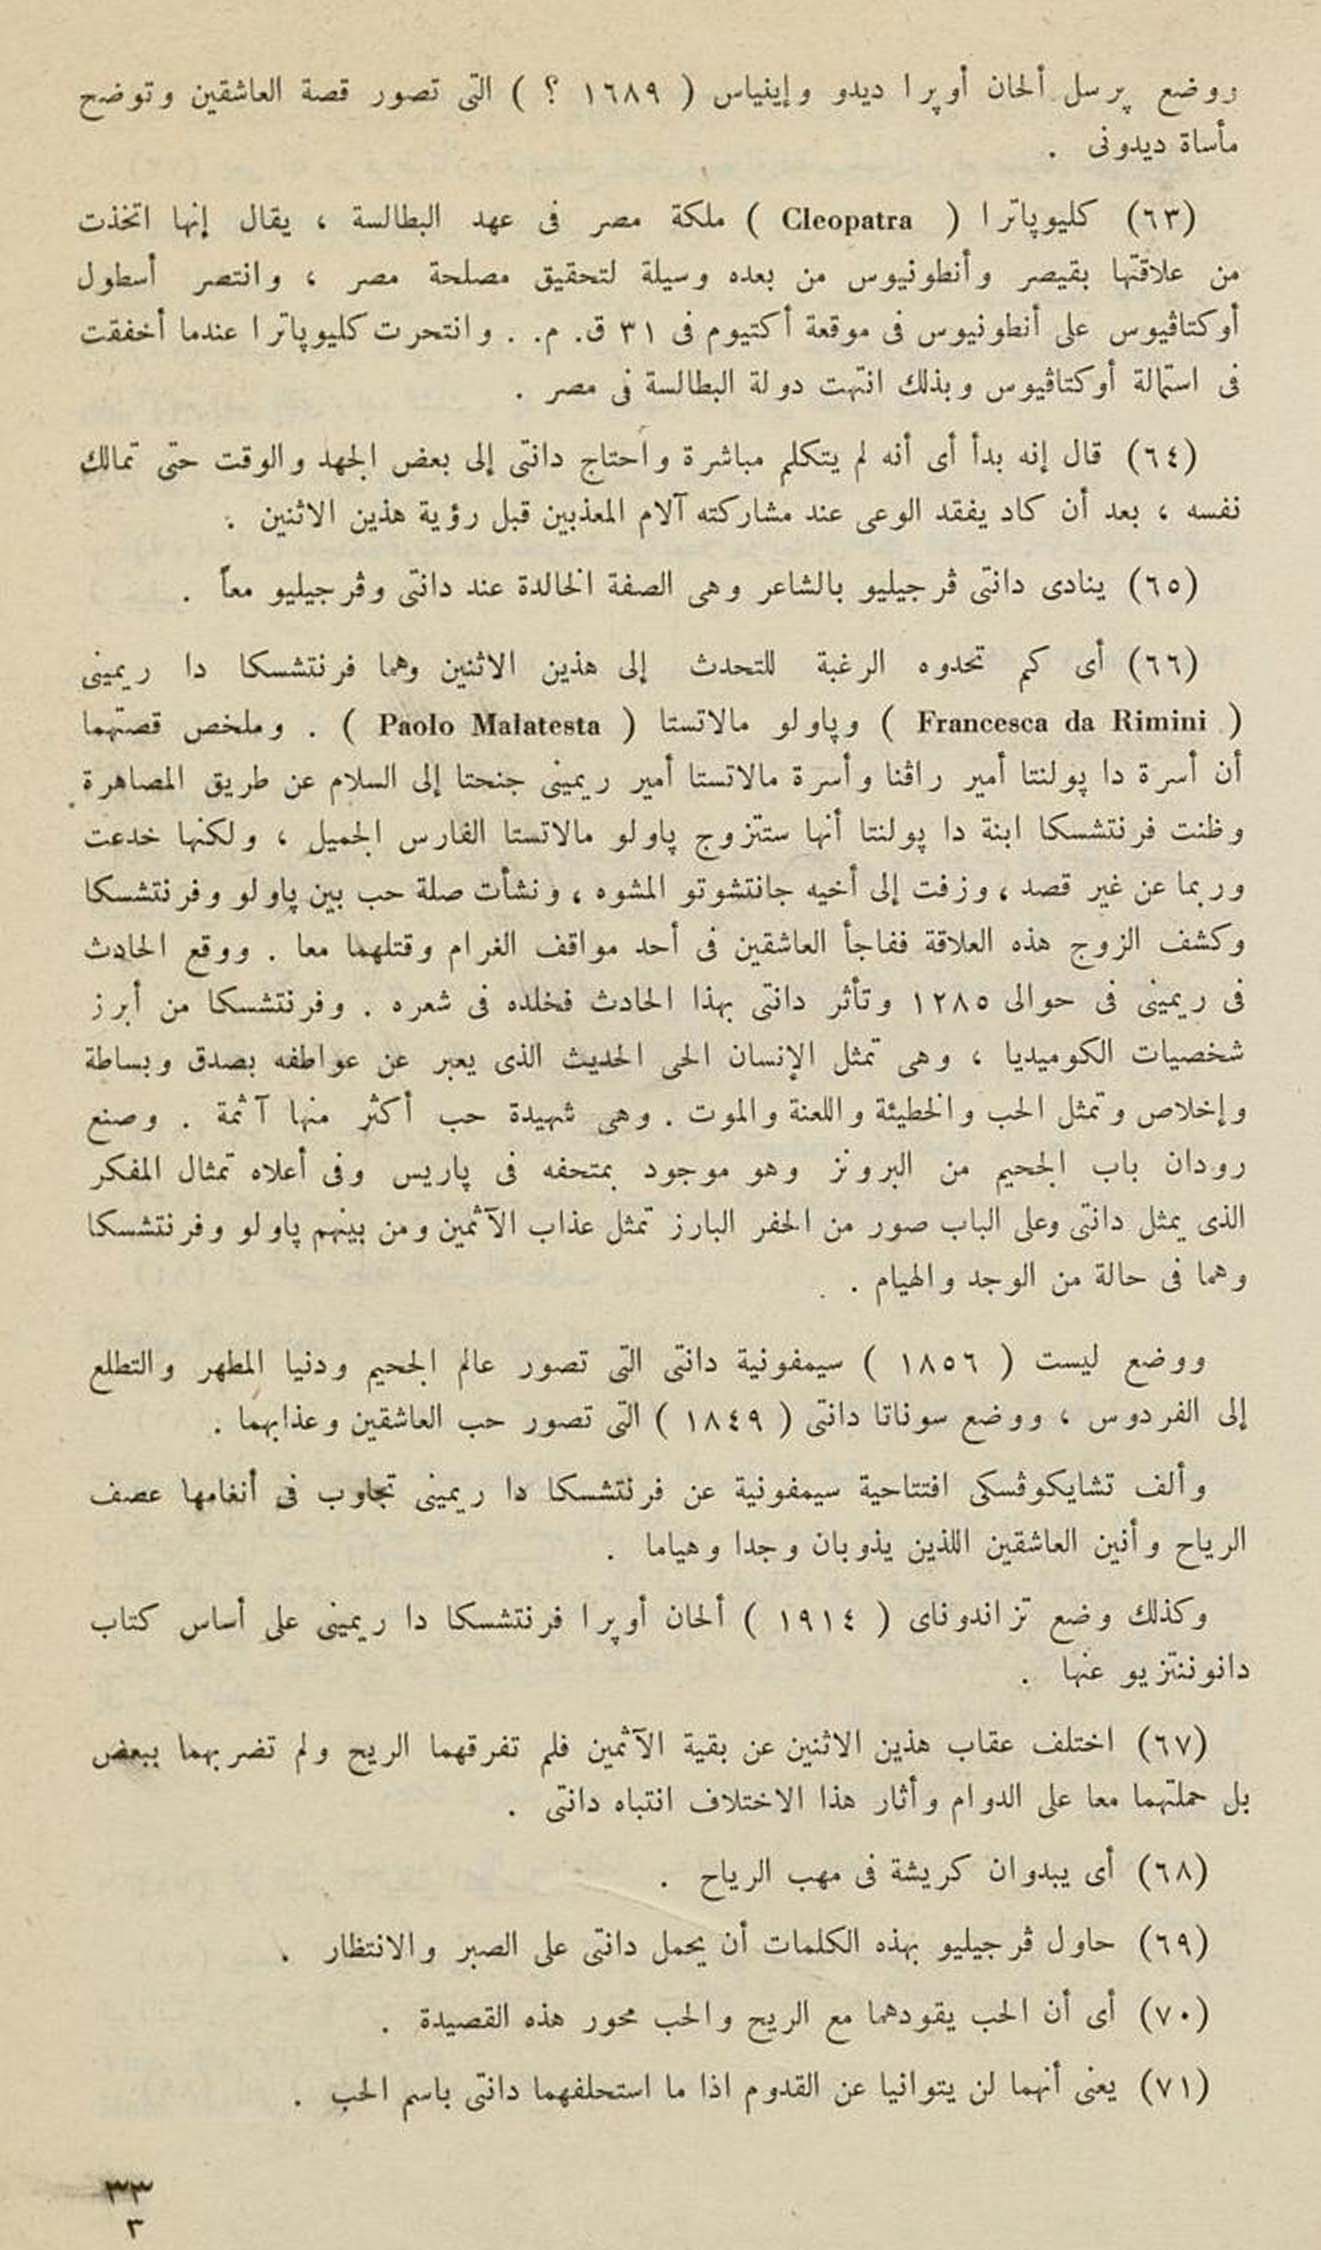 ووضع پرسل ألحان أوپرا ديدو وإينياس ( ١٦٨٩ ؟ ) التى تصور قصة العاشقين وتوضح
مأساة ديدونى .
(٦٣) كليوپاترا ( Cleopatra ) ملكة مصر فى عهد البطالسة ، يقال إنها اتخذت
من علاقتها بقيصر وأنطونيوس من بعده وسيلة لتحقيق مصلحة مصر ، وانتصر أسطول
أوكتاڤيوس على أنطونيوس فى موقعة أكتيوم فى ٣١ ق. م. . وانتحرت كليوپاترا عندما أخفقت
فى استمالة أوكتاڤيوس وبذلك انتهت دولة البطالسة فى مصر .
(٦٤) قال إنه بدأ أى أنه لم يتكلم مباشرة واحتاج دانتى إلى بعض الجهد والوقت حتى تمالك
نفسه ، بعد أن كاد يفقد الوعى عند مشاركته آلام المعذبين قبل رؤية هذين الاثنين .
(٦٥) ينادى دانتى ڤرجيليو بالشاعر وهى الصفة الخالدة عند دانتى وڤرجيليو معاً .
(٦٦) أى كم تحدوه الرغبة للتحدث إلى هذين الاثنين وهما فرنتشسكا دا ريمينى
( Francesca da Rimini ) وپاولو مالاتستا ( Paolo Malatesta ) . وملخص قصتهما
أن أسرة دا پولنتا أمير راڤنا وأسرة مالاتستا أمير ريمينى جنحتا إلى السلام عن طريق المصاهرة .
وظنت فرنتشسكا ابنة دا پولنتا أنها ستتزوج پاولو مالاتستا الفارس الجميل ، ولكنها خدعت
وربما عن غير قصد ، وزفت إلى أخيه جانتشوتو المشوه ، ونشأت صلة حب بين پاولو وفرنتشسكا
وكشف الزوج هذه العلاقة ففاجأ العاشقين فى أحد مواقف الغرام وقتلهما معا . ووقع الحادث
فى ريمينى فى حوالى ١٢٨٥ وتأثر دانتى بهذا الحادث فخلده فى شعره . وفرنتشسكا من أبرز
شخصيات الكوميديا ، وهى تمثل الإنسان الحى الحديث الذى يعبر عن عواطفه بصدق وبساطة
وإخلاص وتمثل الحب والخطيئة واللعنة والموت . وهى شهيدة حب أكثر منها آثمة . وصنع
رودان باب الجحيم من البرونز وهو موجود بمتحفه فى پاريس وفى أعلاه تمثال المفكر
الذى يمثل دانتى وعلى الباب صور من الحفر البارز تمثل عذاب الآثمين ومن بينهم پاولو وفرنتشسكا
وهما فى حالة من الوجد والهيام .
ووضع ليست ( ١٨٥٦ ) سيمفونية دانتى التى تصور عالم الجحيم ودنيا المطهر والتطلع
إلى الفردوس ، ووضع سوناتا دانتى ( ١٨٤٩ ) التى تصور حب العاشقين وعذابهما .
وألف تشايكوڤسكى افتتاحية سيمفونية عن فرنتشسكا دا ريمينى تجاوب فى أنغامها عصف
الرياح وأنين العاشقين اللذين يذوبان وجدا وهياما .
وكذلك وضع تزاندوناى ( ١٩١٤ ) ألحان أوپرا فرنتشسكا دا ريمينى على أساس كتاب
دانوننتزيو عنها .
(٦٧) اختلف عقاب هذين الاثنين عن بقية الآثمين فلم تفرقهما الريح ولم تضربهما ببعض
بل حملتهما معا على الدوام وأثار هذا الاختلاف انتباه دانتى .
(٦٨) أى يبدوان كريشة فى مهب الرياح .
(٦٩) حاول ڤرجيليو بهذه الكلمات أن يحمل دانتى على الصبر والانتظار .
(٧٠) أى أن الحب يقودهما مع الريح والحب محور هذه القصيدة .
(٧١) يعنى أنهما لن يتوانيا عن القدوم اذا ما استحلفهما دانتى باسم الحب .
٣٣
٣